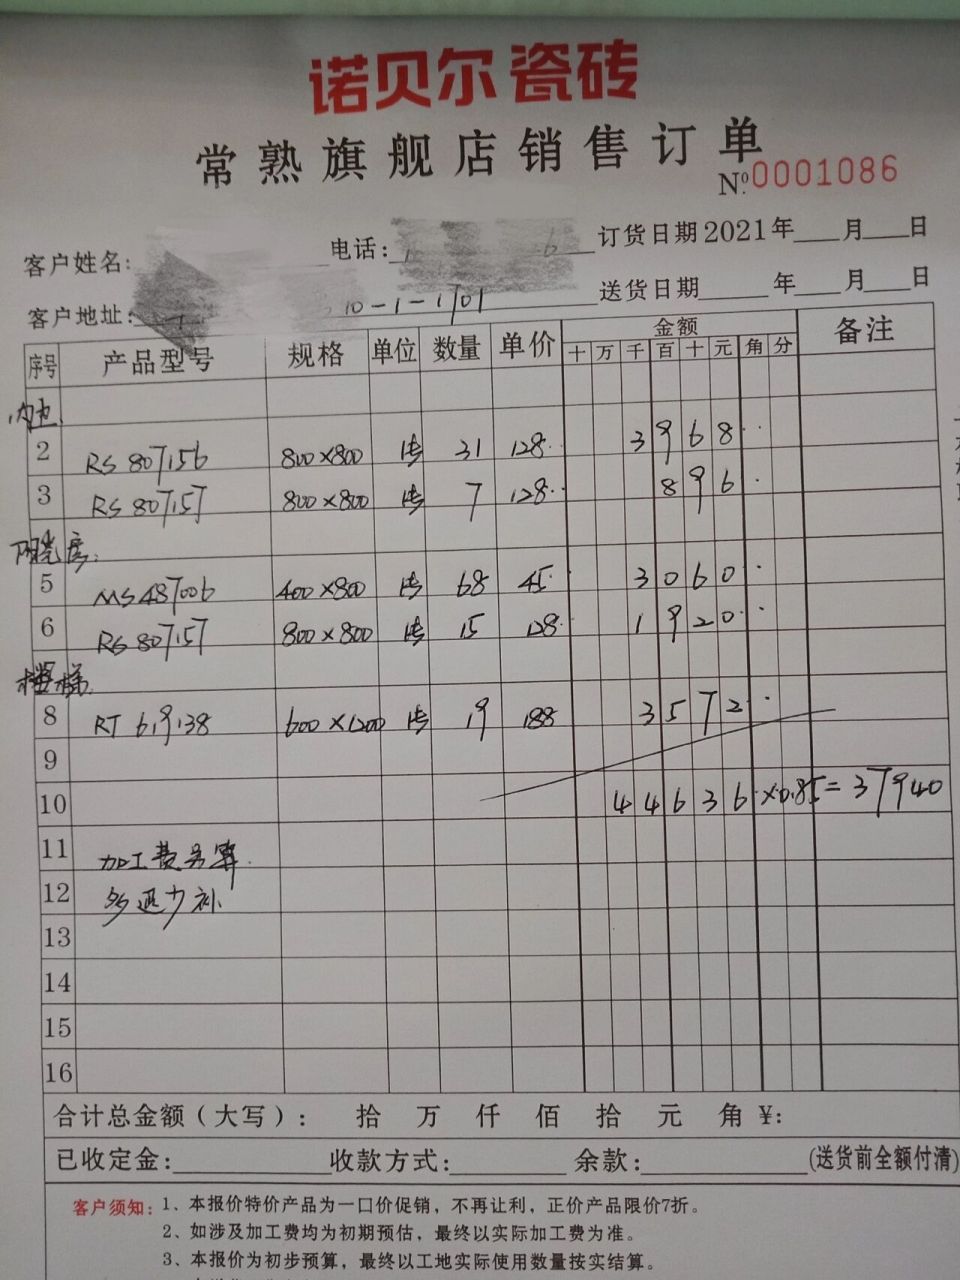 诺贝尔瓷砖
常熟旗舰店销售订单
Nº:0001086
客户姓名: 电话: 订货日期 2021 年 月 日
客户地址: 10-1-1101 送货日期 年 月 日
序号 产品型号 规格 单位 数量 单价 金额 备注
十 万 千 百 十 元 角 分
2 RS807156 800×800 片 31 128 3968
3 RS807157 800×800 片 7 128 896
阳光房
5 MS48700b 400×800 片 68 45 3060
6 RS807157 800×800 片 15 128 1920
楼梯
8 RT619138 600×1200 片 19 188 3572
9
10 44636×0.85=37940
11 加工费另算
12 多退少补
13
14
15
16
合计总金额（大写）： 拾 万 仟 佰 拾 元 角 ¥:
已收定金: 收款方式: 余款: (送货前全额付清)
客户须知: 1、本报价特价产品为一口价促销，不再让利，正价产品限价7折。
2、如涉及加工费均为初期预估，最终以实际加工费为准。
3、本报价为初步预算，最终以工地实际使用数量按实结算。